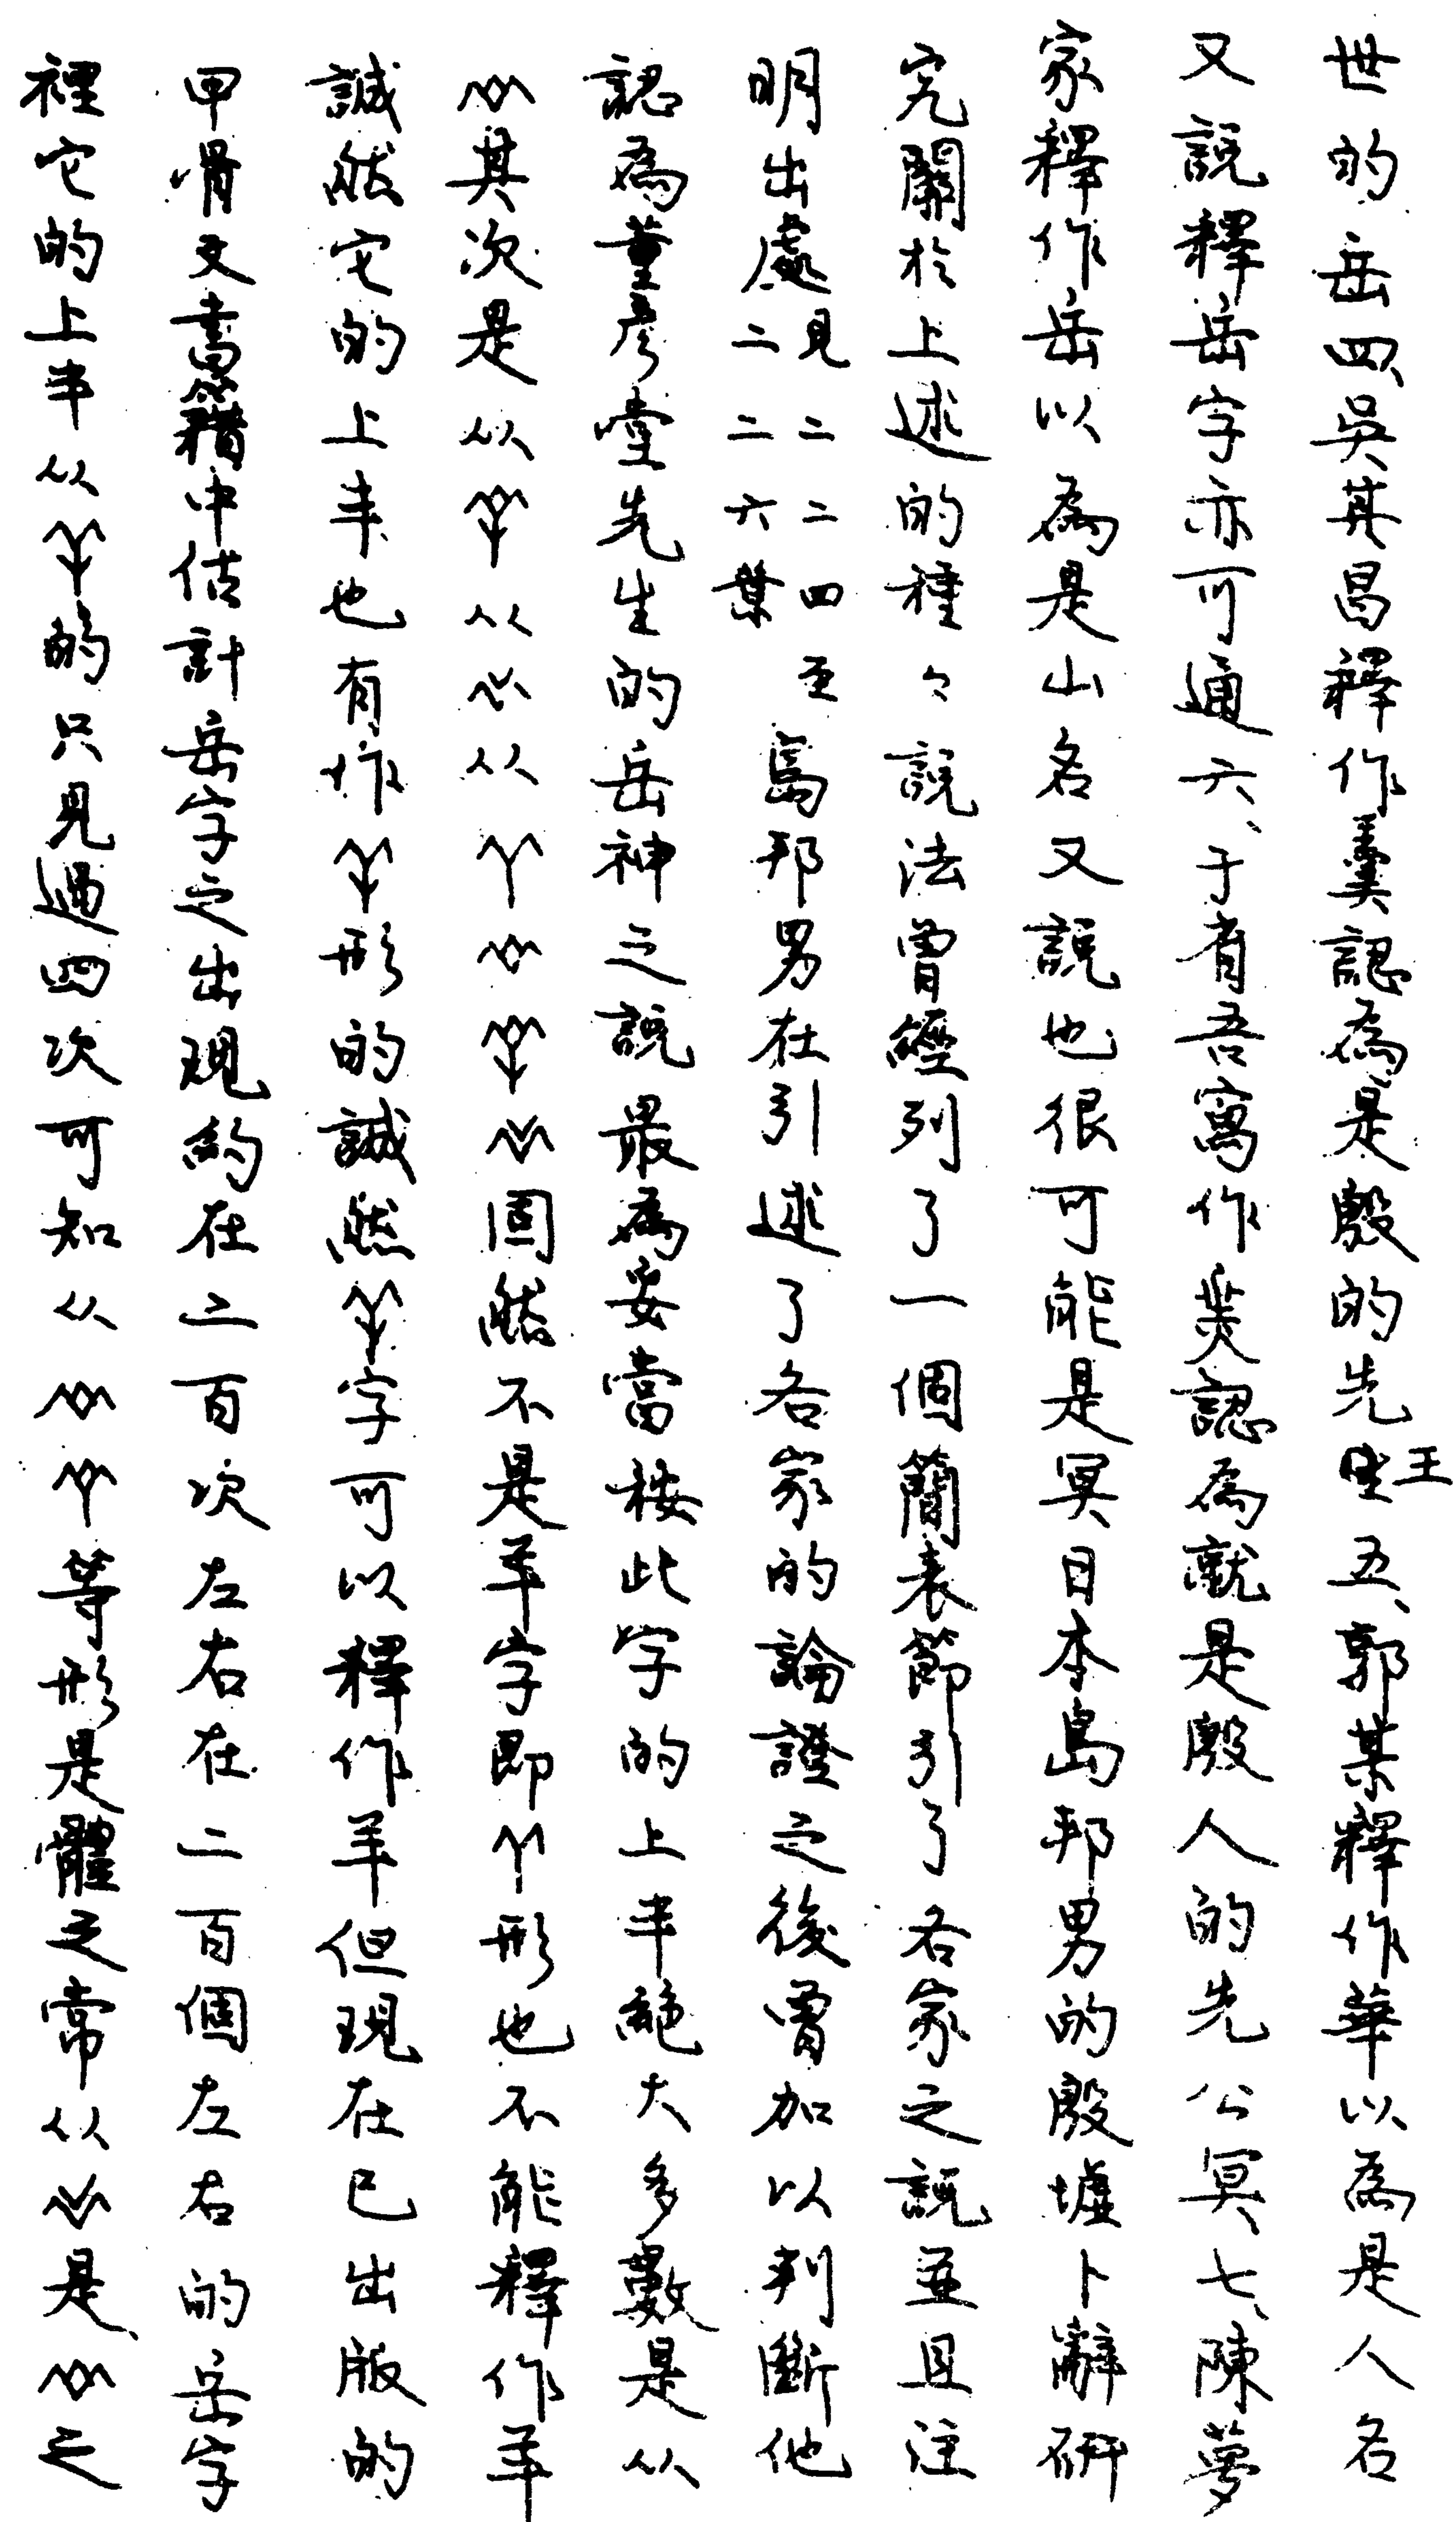 世的岳四、吳其昌釋作羹認為是殷的先王五、郭某釋作華以為是人名
又說釋岳字亦可通六、于省吾寫作 認為就是殷人的先公冥七、陳夢
家釋作岳以為是山名又說也很可能是冥日本島邦男的殷墟卜辭研
究關於上述的種々說法曾經列了一個簡表節引了各家之說並且注
明出處見二二四至二二六葉島邦男在引述了各家的論證之後曾加以判斷他
認為董彥堂先生的岳神之說最為妥當按此字的上半絕大多數是从
其次是从 从 从 固然不是羊字即 形也不能釋作羊
誠然它的上半也有作 形的誠然 字可以釋作羊但現在已出版的
甲骨文書籍中估計岳字之出現約在二百次左右在二百個左右的岳字
裡它的上半从 的只見過四次可知从 等形是體之常从 是、 之